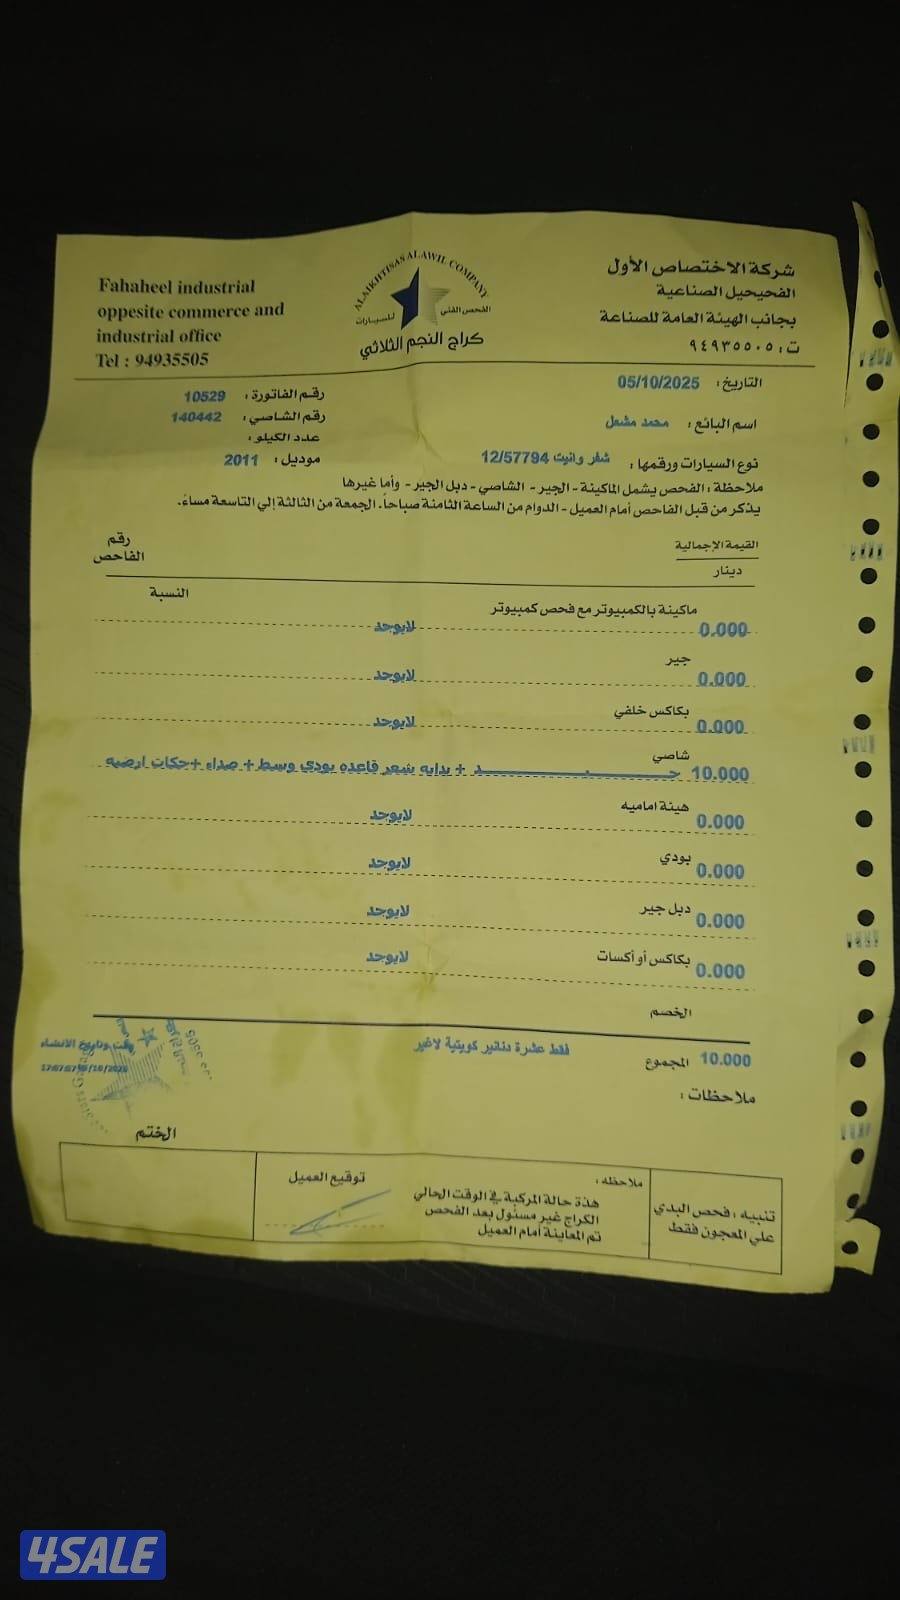 Fahaheel industrial
oppesite commerce and
industrial office
Tel : 94935505
ALAIKHTISAS ALAWIL COMPANY
الفحص الفني للسيارات
كراج النجم الثلاثي
شركة الاختصاص الأول
الفحيحيل الصناعية
بجانب الهيئة العامة للصناعة
ت : ٩٤٩٣٥٥٠٥
التاريخ : 05/10/2025
رقم الفاتورة : 10529
اسم البائع : محمد مشعل
رقم الشاصي : 140442
عدد الكيلو :
نوع السيارات ورقمها : شفر وانيت 12/57794
موديل : 2011
ملاحظة : الفحص يشمل الماكينة - الجير - الشاصي - دبل الجير - وأما غيرها
يذكر من قبل الفاحص أمام العميل - الدوام من الساعة الثامنة صباحاً. الجمعة من الثالثة إلي التاسعة مساءً.
القيمة الإجمالية
دينار
رقم الفاحص
النسبة
ماكينة بالكمبيوتر مع فحص كمبيوتر
0.000 لايوجد
جير
0.000 لايوجد
بكاكس خلفي
0.000 لايوجد
شاصي
10.000 جـــــــــد + بدايه شعر قاعده بودي وسط + صداء +جكات ارضيه
هيئة اماميه
0.000 لايوجد
بودي
0.000 لايوجد
دبل جير
0.000 لايوجد
بكاكس أو أكسات
0.000 لايوجد
الخصم
10.000 المجموع فقط عشرة دنانير كويتية لاغير
ملاحظات :
وقت وتاريخ الانشاء
الختم
تنبيه : فحص البدي
علي المعجون فقط
ملاحظه :
هذة حالة المركبة في الوقت الحالي
الكراج غير مسئول بعد الفحص
تم المعاينة امام العميل
توقيع العميل
4SALE